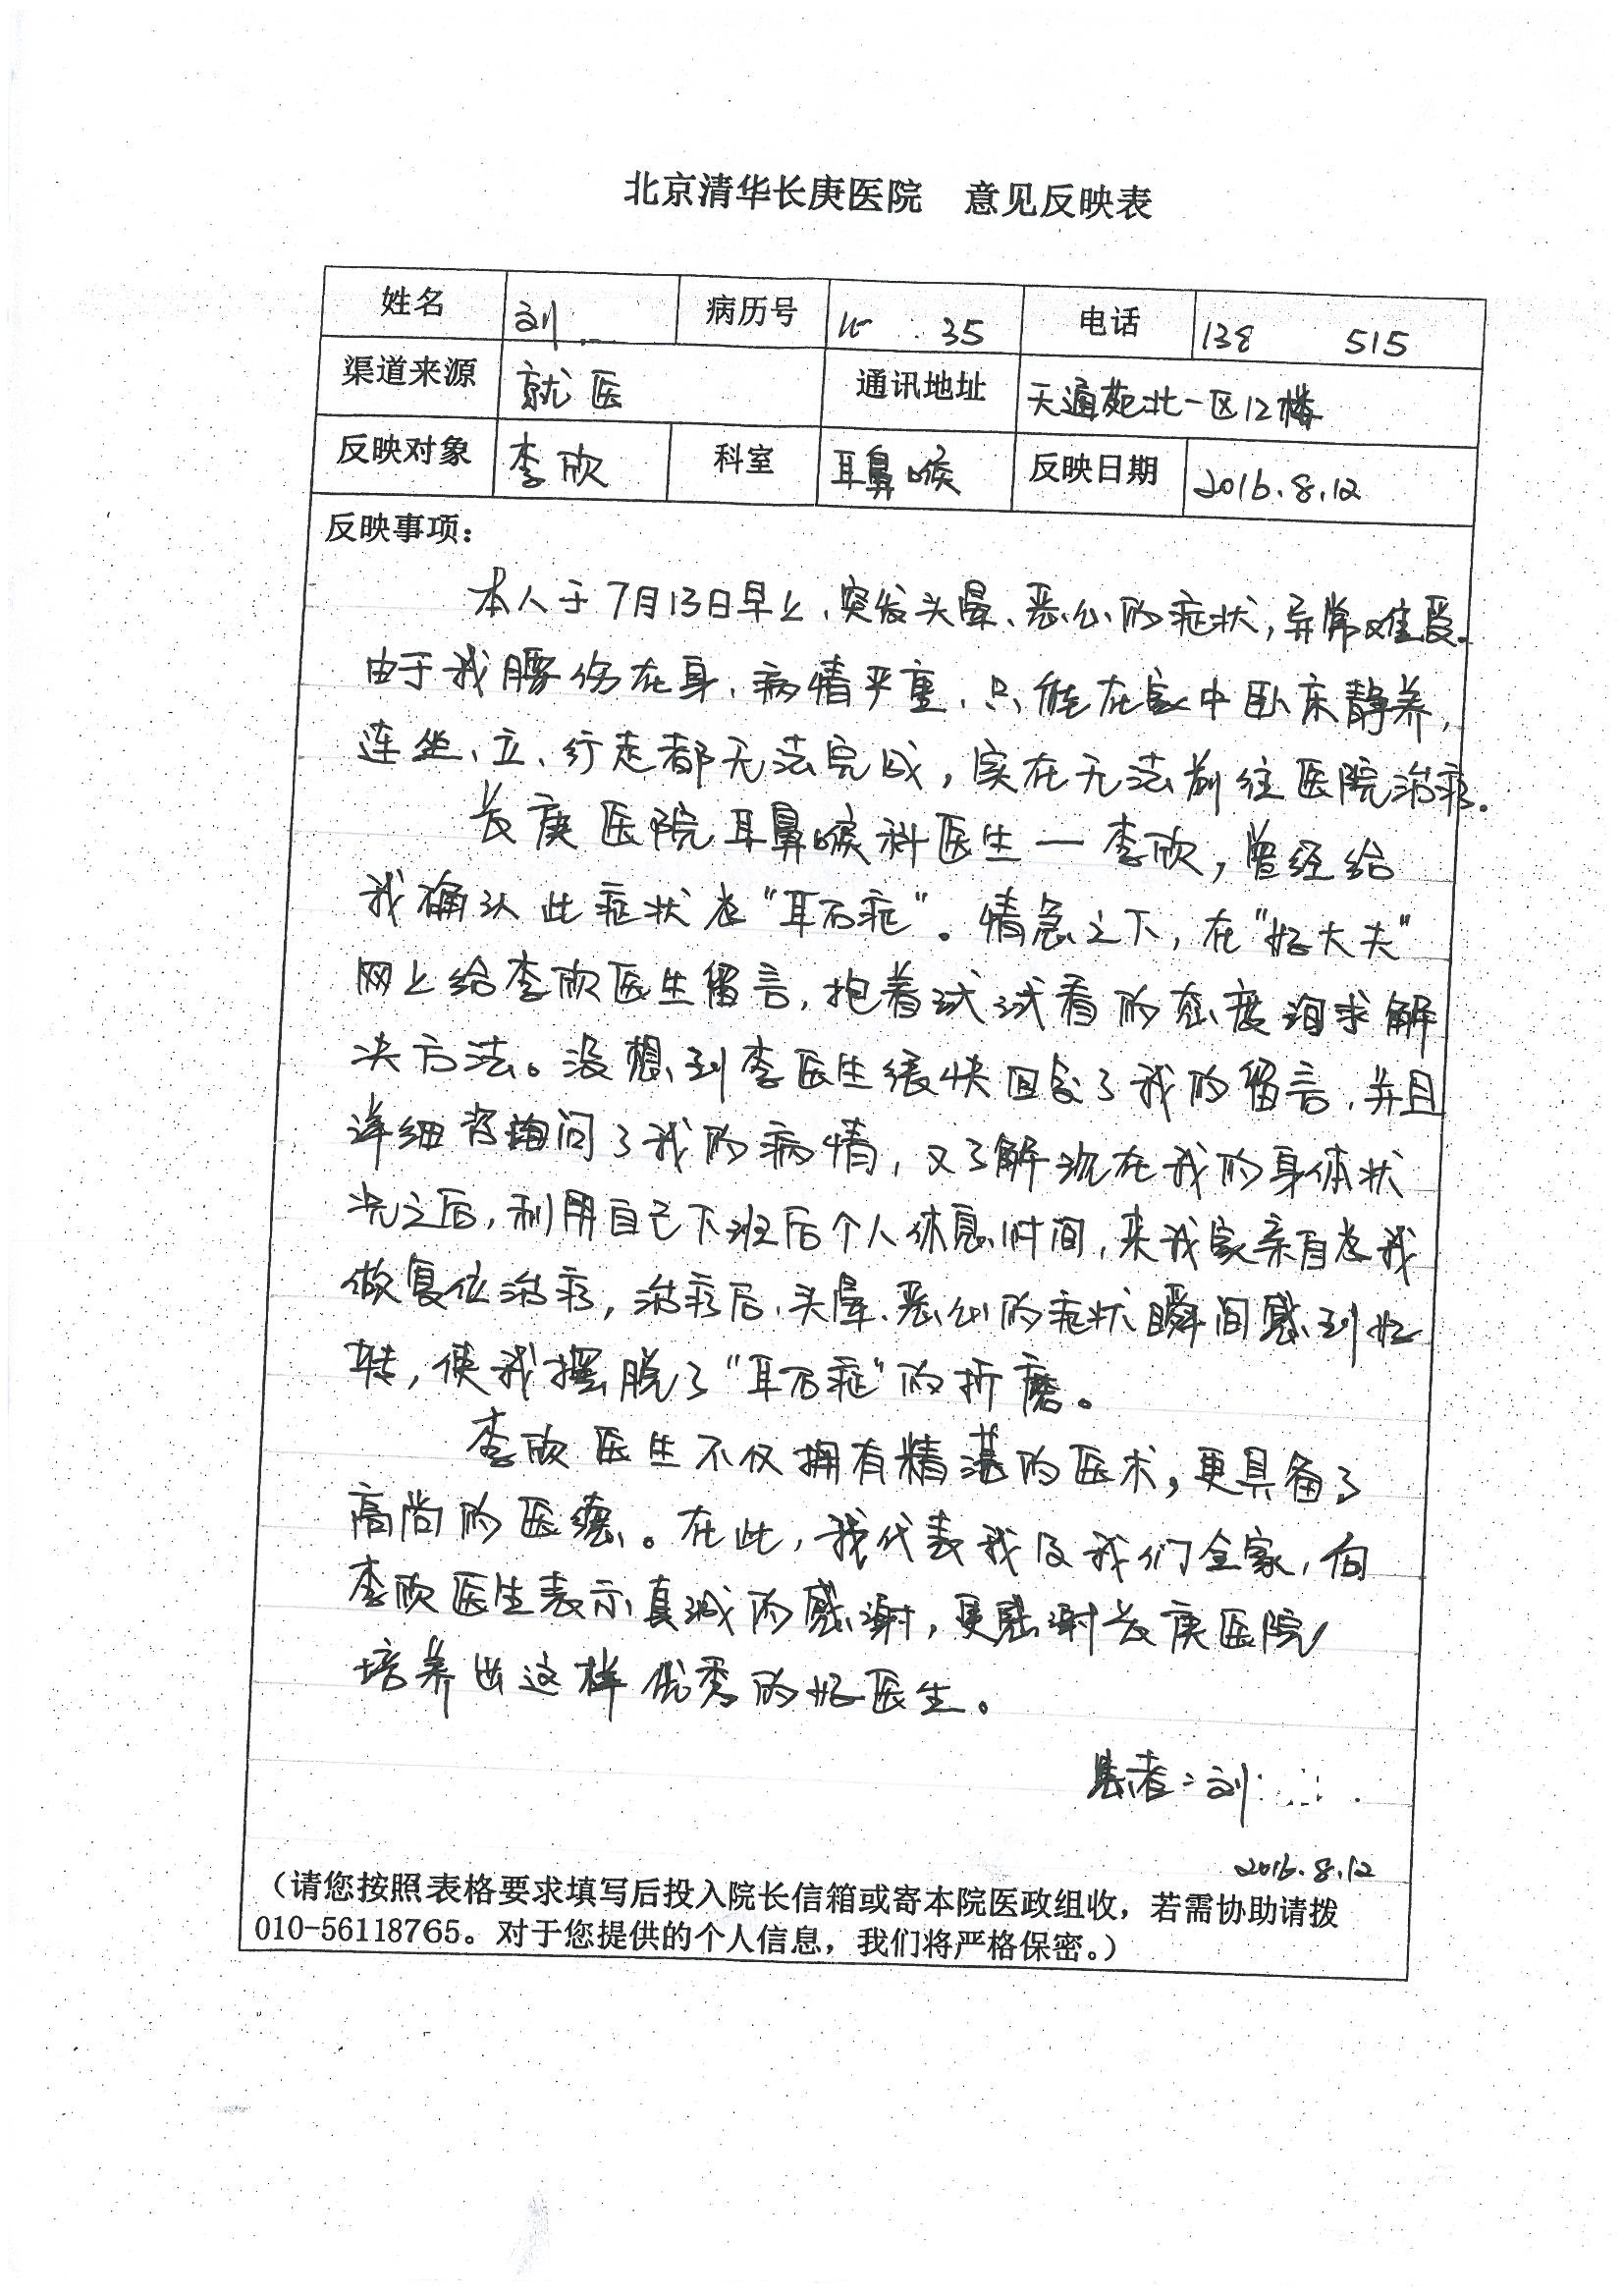 北京清华长庚医院 意见反映表
姓名 刘 病历号 35 电话 138 515
渠道来源 就医 通讯地址 天通苑北一区12楼
反映对象 李欣 科室 耳鼻喉 反映日期 2016.8.12
反映事项：
本人于7月13日早上、突发头晕、恶心的症状，异常难受。
由于我腰伤在身、病情严重、只能在家中卧床静养，
连坐、立、行走都无法完成，实在无法前往医院治疗。
长庚医院耳鼻喉科医生一李欣，曾经给
我确认此症状为“耳石症”。情急之下，在“好大夫”
网上给李欣医生留言，抱着试试看的态度询求解
决方法。没想到李医生很快回复了我的留言，并且
详细咨询问了我的病情，又了解现在我的身体状
况之后，利用自己下班后个人休息时间，来我家亲自为我
做复位治疗，治疗后、头晕、恶心的症状瞬间感到好
转，使我摆脱了“耳石症”的折磨。
李欣医生不仅拥有精湛的医术，更具备了
高尚的医德。在此，我代表我及我们全家，向
李欣医生表示真诚的感谢，更感谢长庚医院
培养出这样优秀的好医生。
患者：刘
2016.8.12
（请您按照表格要求填写后投入院长信箱或寄本院医政组收，若需协助请拨
010-56118765。对于您提供的个人信息，我们将严格保密。）